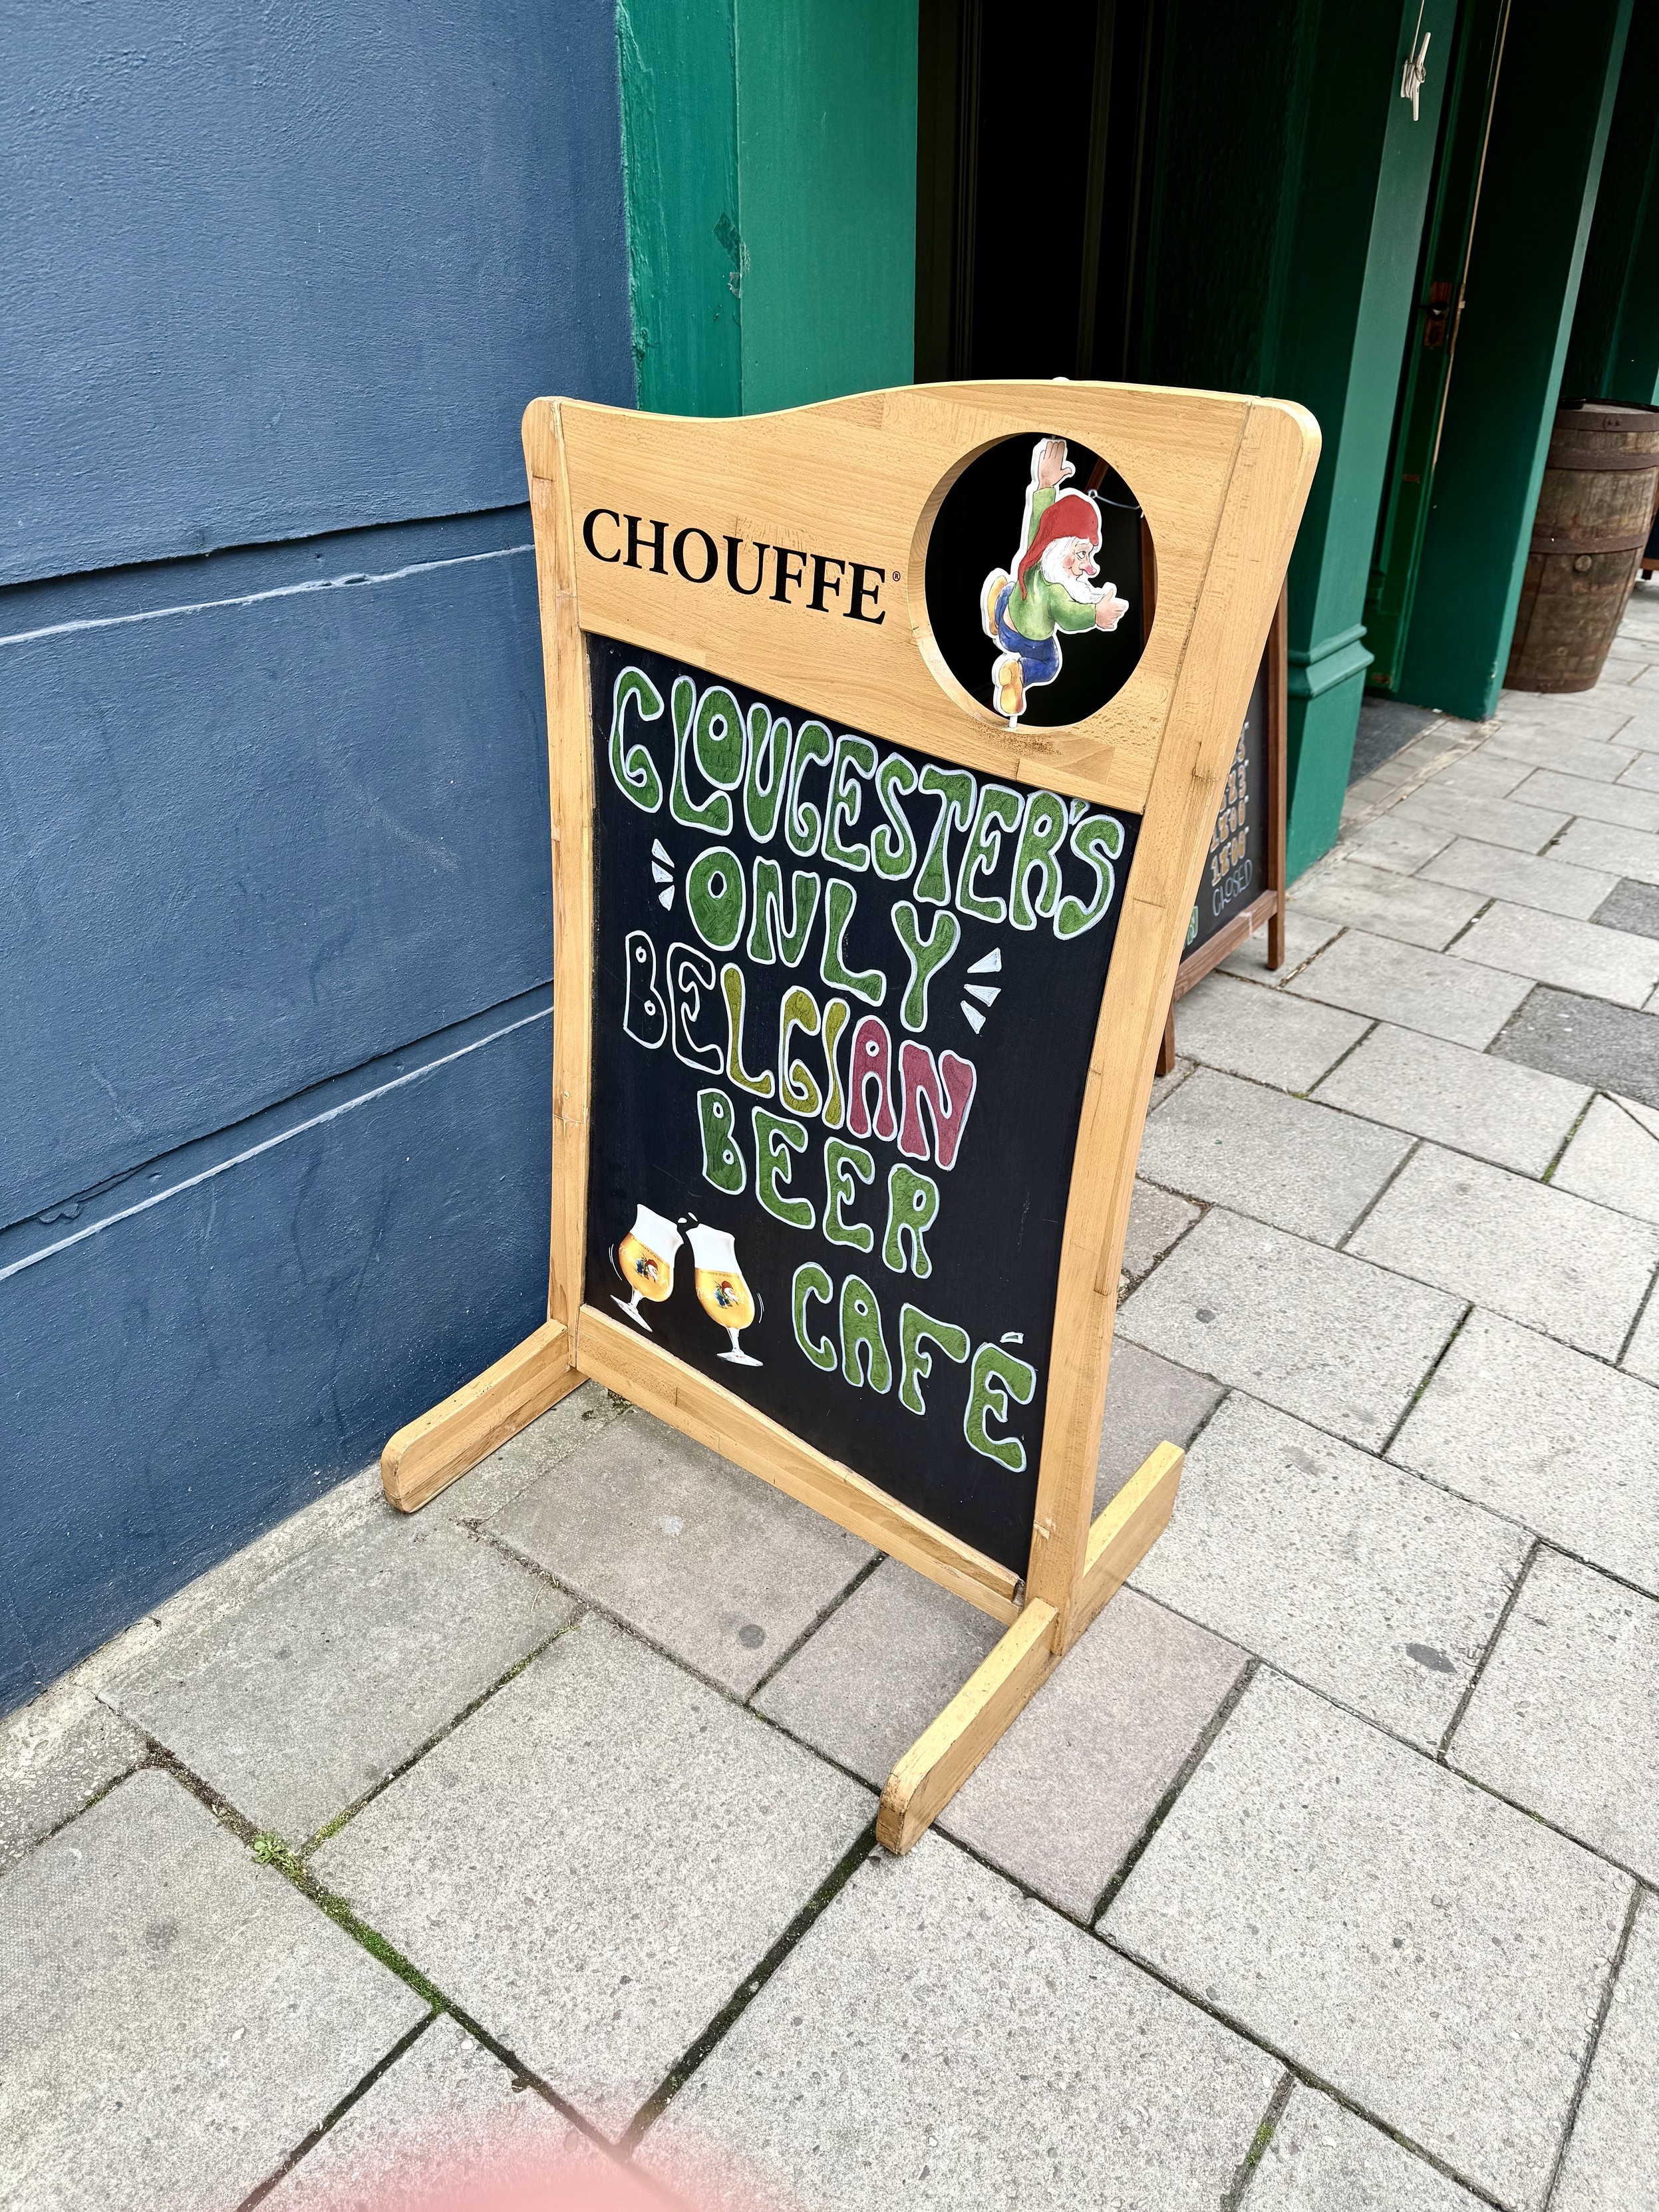 CHOUFFE®
GLOUCESTER'S
ONLY
BELGIAN
BEER
CAFÉ
CLOSED